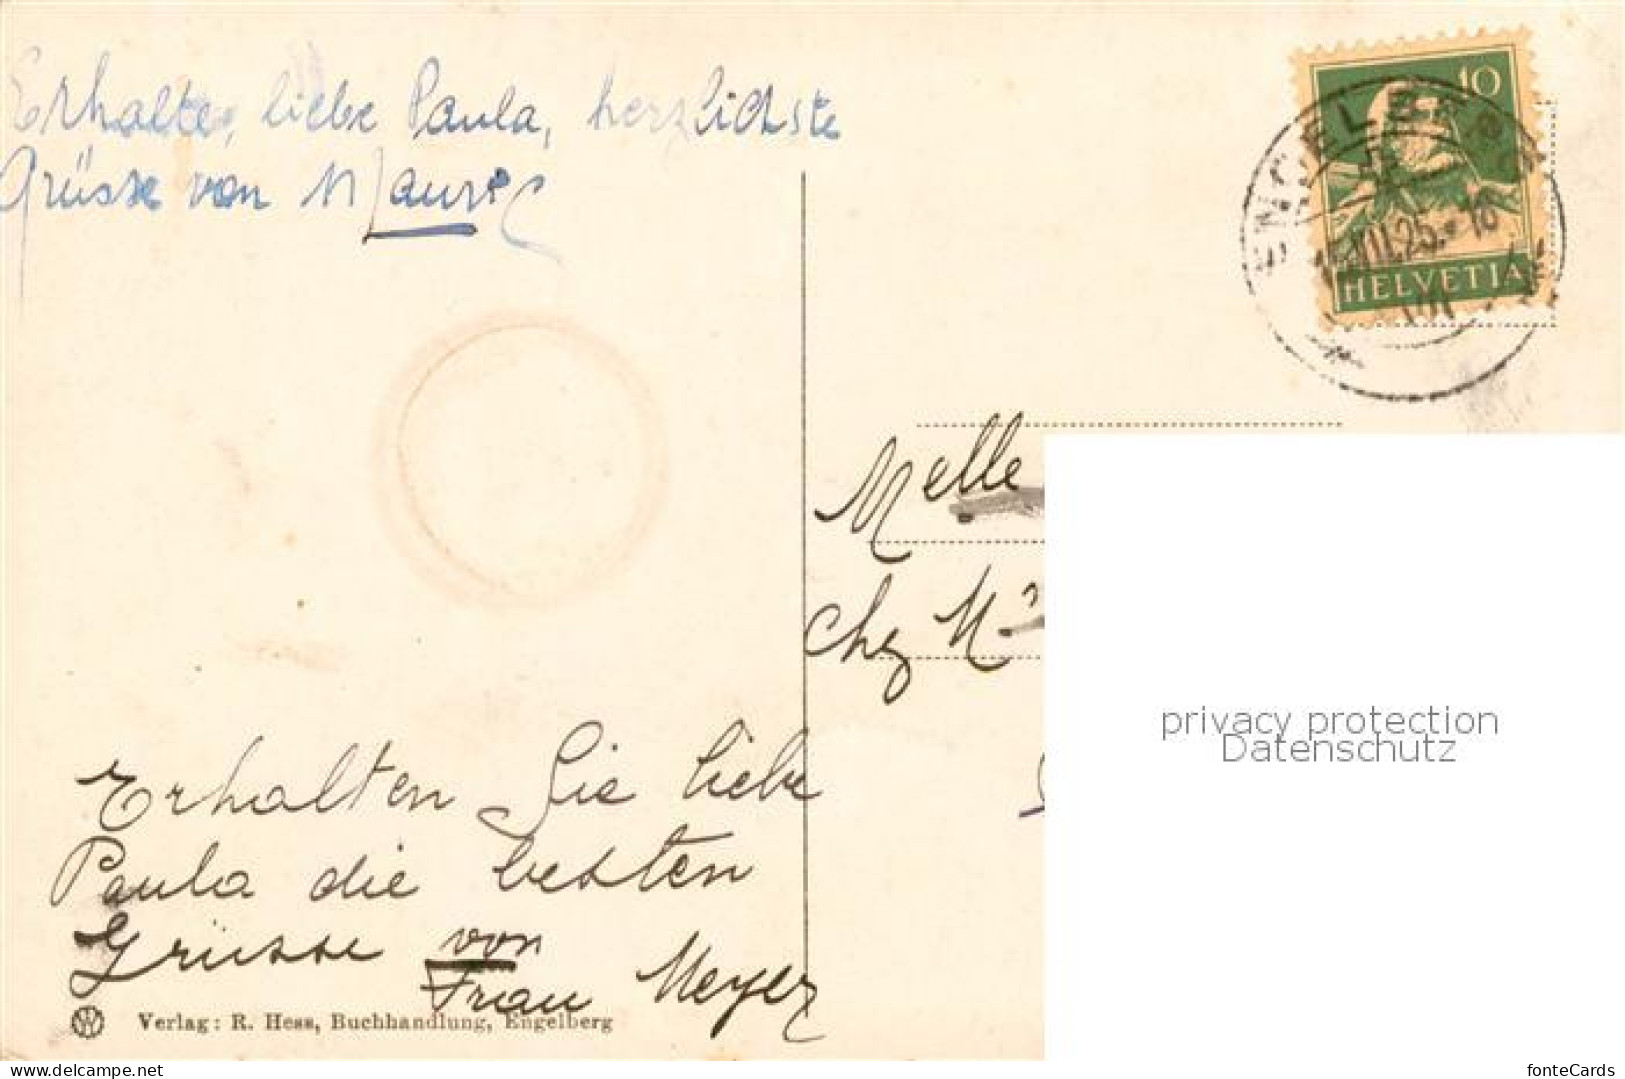 Erhalte, liebe Paula, herzlichste
Grüsse von Mauric
10
HELVETIA
ENGELBERG
VII.25.-16
Melle
chez Mr
privacy protection
Datenschutz
Erhalten Sie liebe
Paula die besten
Grüsse von
Frau Meyer
Verlag: R. Hess, Buchhandlung, Engelberg
www.ansichtskarten-center.de
fonteCards